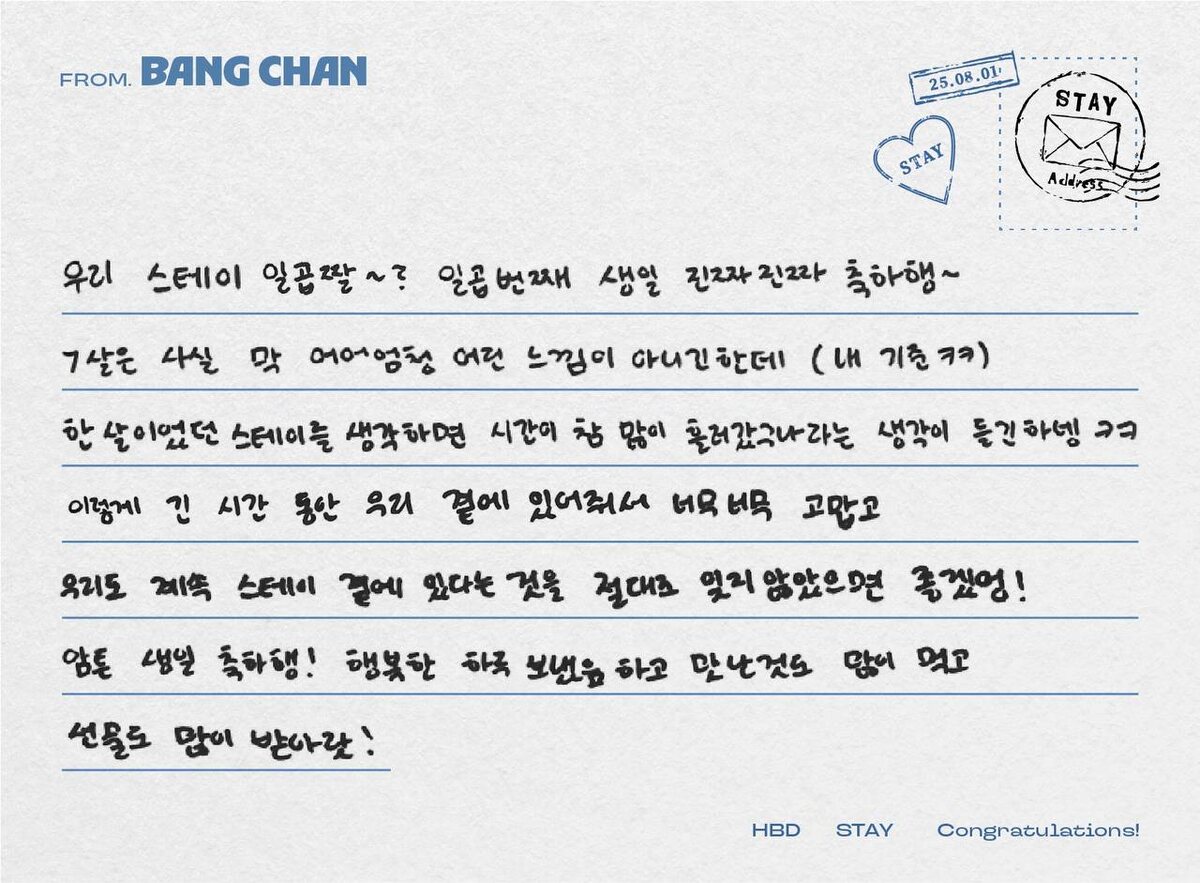 FROM. BANG CHAN
25.08.01
STAY
STAY
Address
우리 스테이 일곱짤~? 일곱번째 생일 진짜진짜 축하행~
7살은 사실 막 어어엄청 어린 느낌이 아니긴한데 (내 기준ㅋㅋ)
한 살이었던 스테이를 생각하면 시간이 참 많이 흘러갔구나라는 생각이 들긴하넹 ㅋㅋ
이렇게 긴 시간 동안 우리 곁에 있어줘서 너무너무 고맙고
우리도 계속 스테이 곁에 있다는 것을 절대로 잊지 않았으면 좋겠엉!
암튼 생일 축하행! 행복한 하루 보냈음 하고 맛난것도 많이 먹고
선물도 많이 받아랏!
HBD STAY Congratulations!